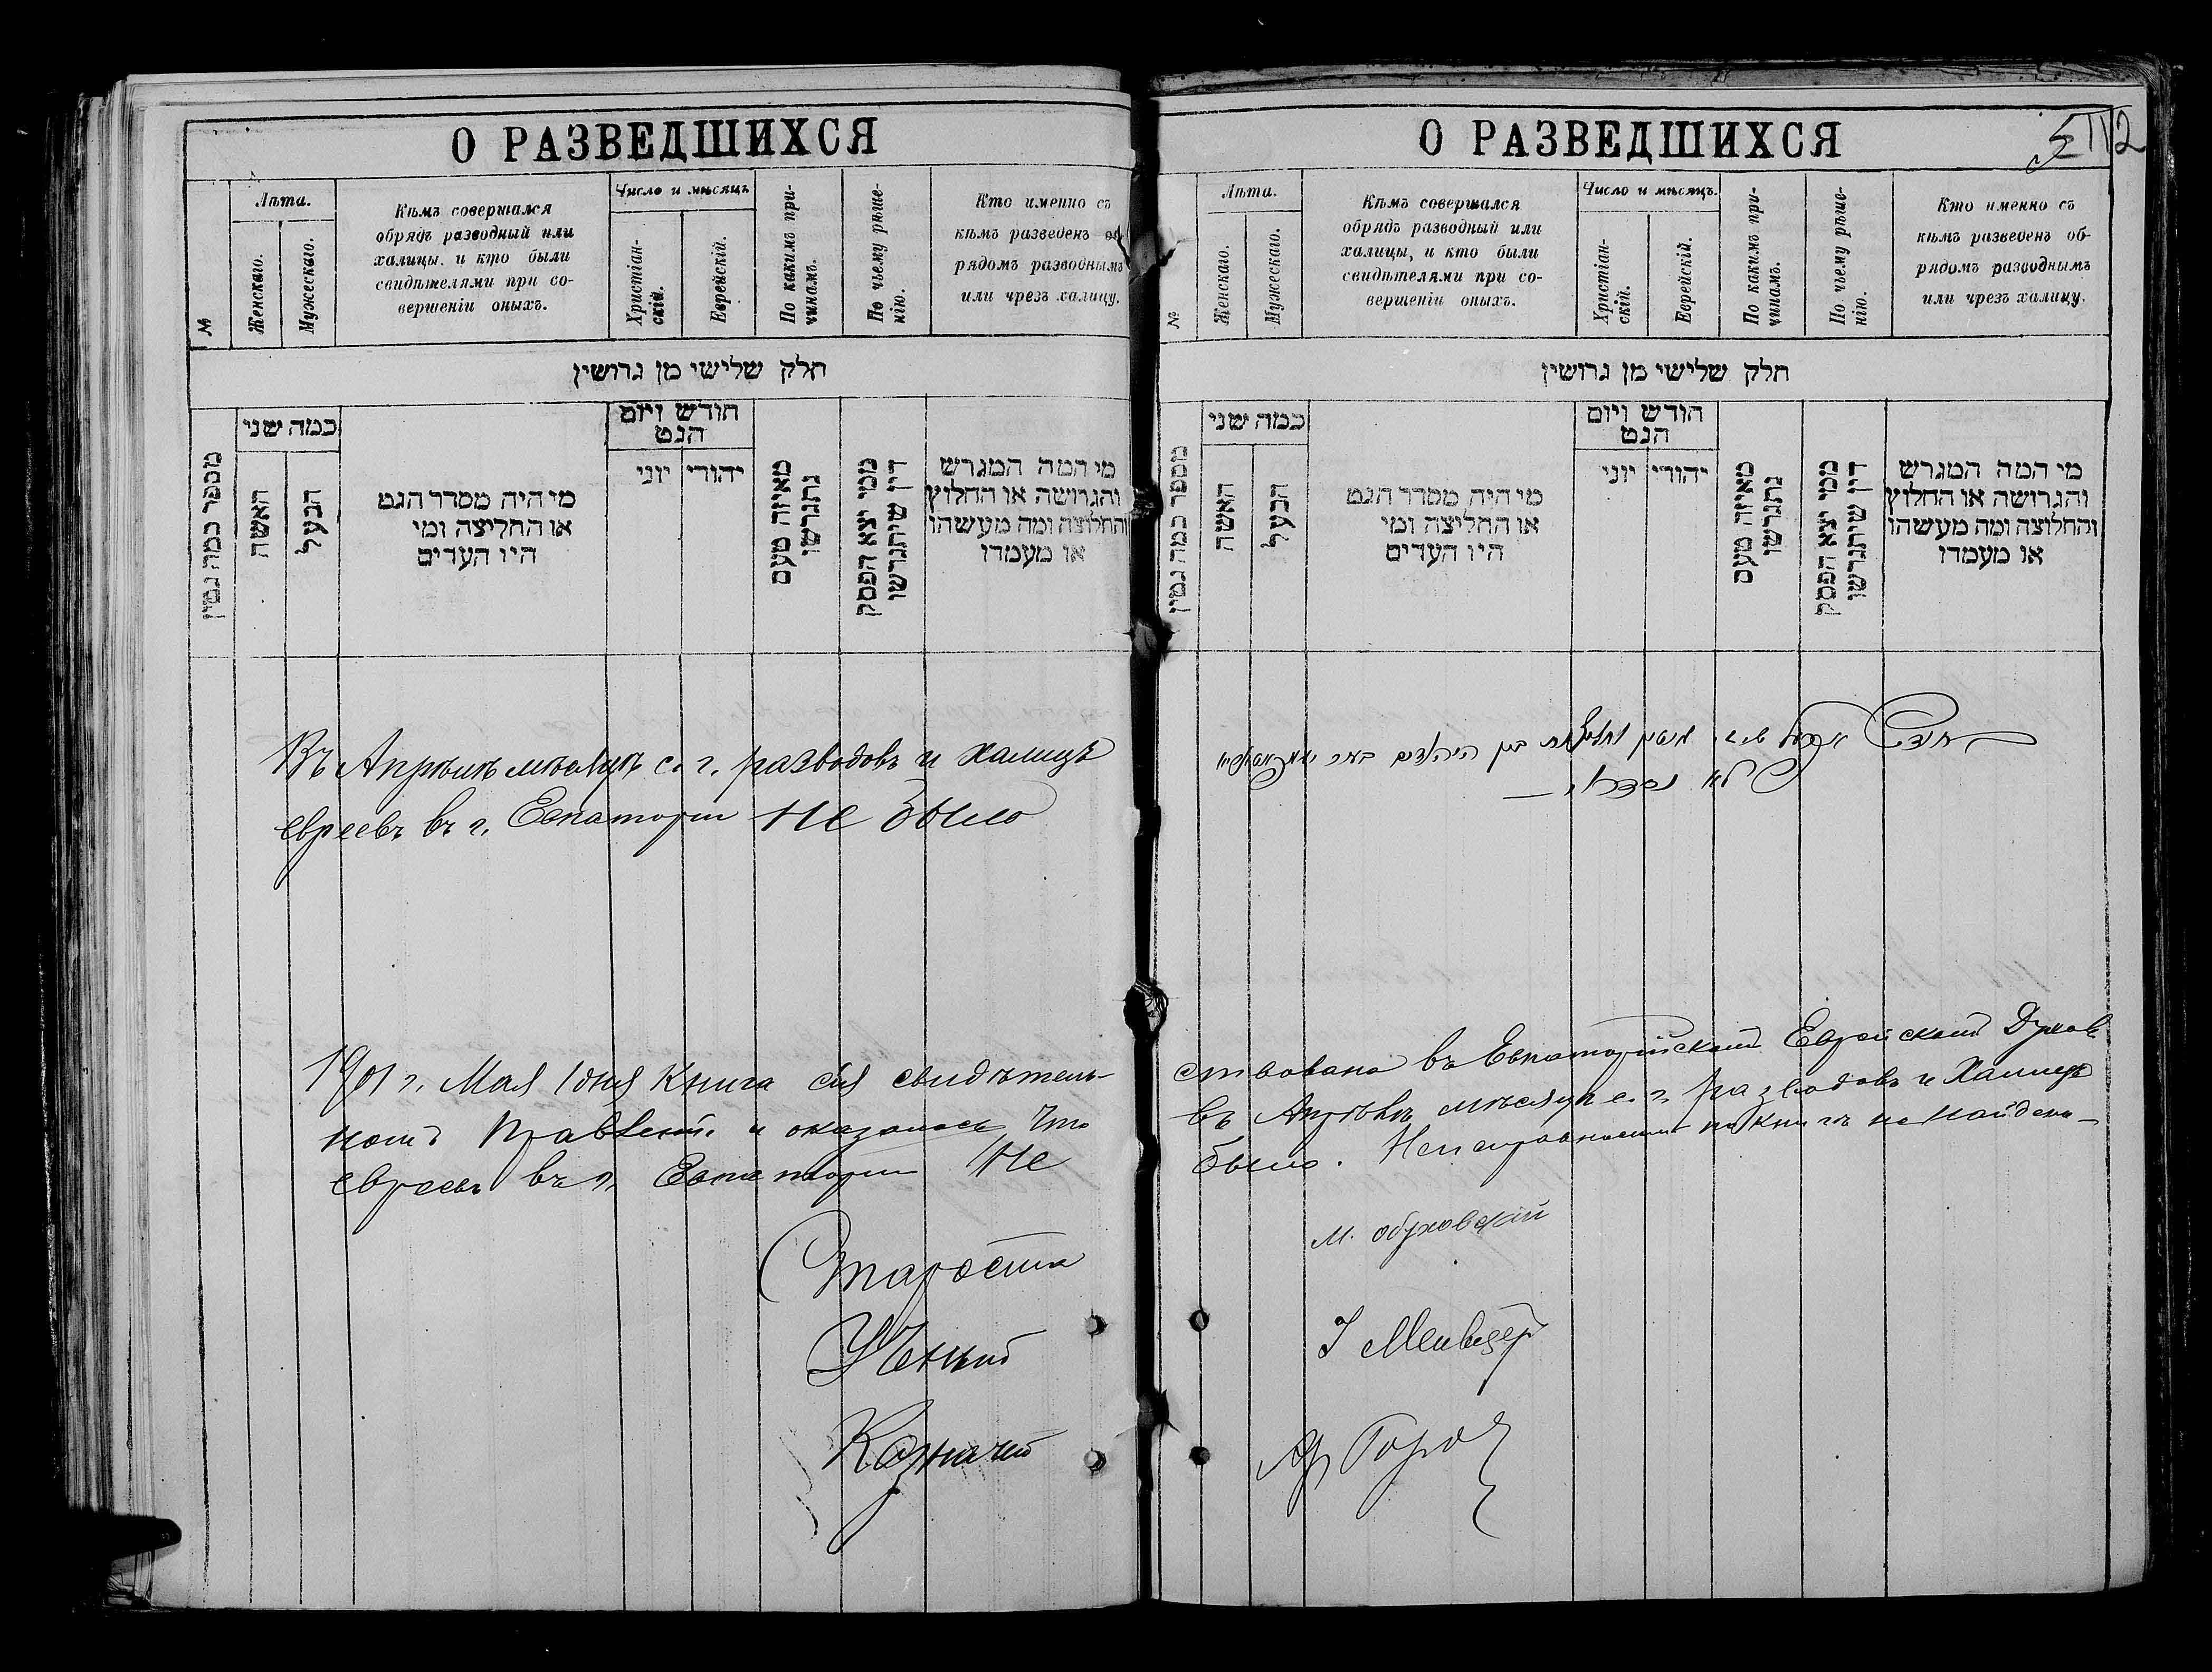 О РАЗВЕДШИХСЯ
№
Лѣта.
Женскаго.
Мужескаго.
Кѣмъ совершался
обрядъ разводный или
халицы, и кто были
свидѣтелями при со-
вершеніи оныхъ.
Число и мѣсяцъ
Христіан-
скій.
Еврейскій.
По какимъ при-
чинамъ.
По чьему рѣше-
нію.
Кто именно съ
кѣмъ разведенъ об-
рядомъ разводнымъ
или чрезъ халицу.
חלק שלישי מן גרושין
מספר כמה גטין
כמה שני
האשה
הבעל
מי היה מסדר הגט
או החליצה ומי
היו העדים
חודש ויום
הגט
יהודי
יוני
מאיזה טעם
נתגרשו
ממי יצא הפסק
דין שיתגרשו
מי המה המגרש
והגרושה או החלוץ
והחלוצה ומה מעשהו
או מעמדו
Въ Апрѣлѣ мѣсяцѣ с. г. разводовъ и халицъ
евреевъ въ г. Евпаторіи не было
1901 г. Мая 1 дня Книга сія свидѣтель-
номъ Правленіи и оказалось что
евреевъ въ г. Евпаторіи Не
Староста
Ученый
Казначей
О РАЗВЕДШИХСЯ
112
№
Лѣта.
Женскаго.
Мужескаго.
Кѣмъ совершался
обрядъ разводный или
халицы, и кто были
свидѣтелями при со-
вершеніи оныхъ.
Число и мѣсяцъ.
Христіан-
скій.
Еврейскій.
По какимъ при-
чинамъ.
По чьему рѣше-
нію.
Кто именно съ
кѣмъ разведенъ об-
рядомъ разводнымъ
или чрезъ халицу.
חלק שלישי מן גרושין
מספר כמה גטין
כמה שני
האשה
הבעל
מי היה מסדר הגט
או החליצה ומי
היו העדים
חודש ויום
הגט
יהודי
יוני
מאיזה טעם
נתגרשו
ממי יצא הפסק
דין שיתגרשו
מי המה המגרש
והגרושה או החלוץ
והחלוצה ומה מעשהו
או מעמדו
גטין וחליצות בין היהודים בעיר
לא נסדרו
ствована въ Евпаторійскомъ Еврейскомъ Духов
въ Апрѣлѣ мѣсяцѣ с. г. разводовъ и Халицъ
было. Неисправностей по книгѣ не найдено
М. Обуховскій